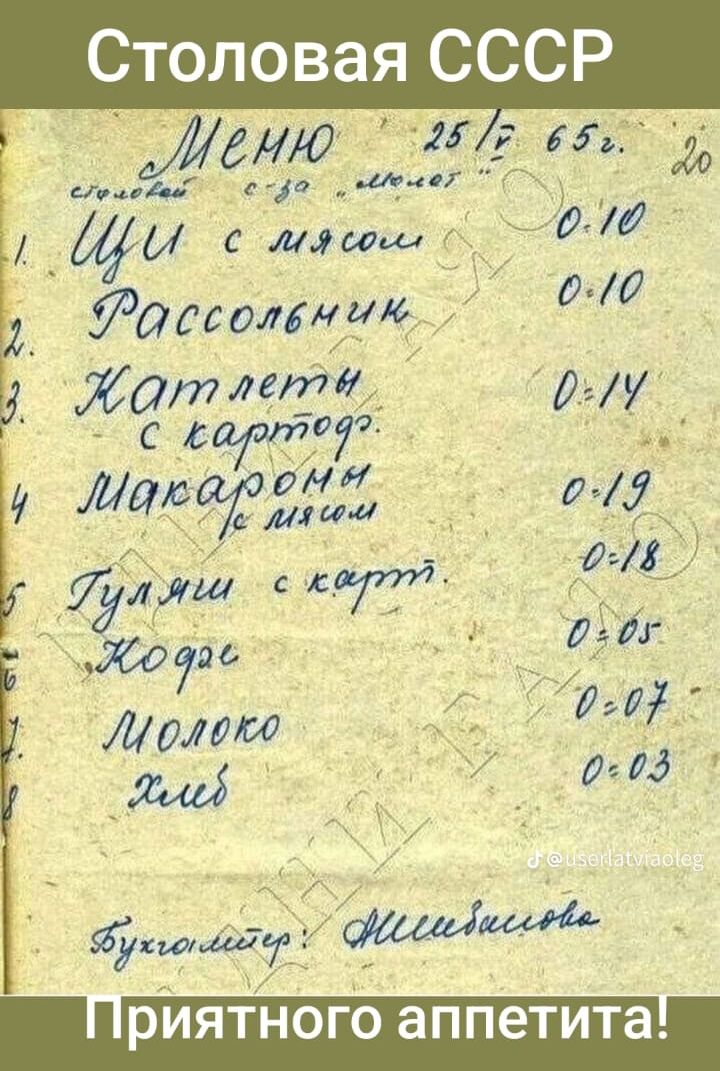 Столовая СССР
Меню 25/V 65г.
20
столовой с-за "Молот"
1. Щи с мясом 0=10
2. Рассольник 0=10
3. Катлеты 0=14
с картоф.
4 Макароны 0=19
с мясом
5 Гуляш с карт. 0=18
6 Кофе 0=05
7. Молоко 0=07
8 Хлеб 0=03
@userlatviaoleg
Бухгалтер:
Приятного аппетита!